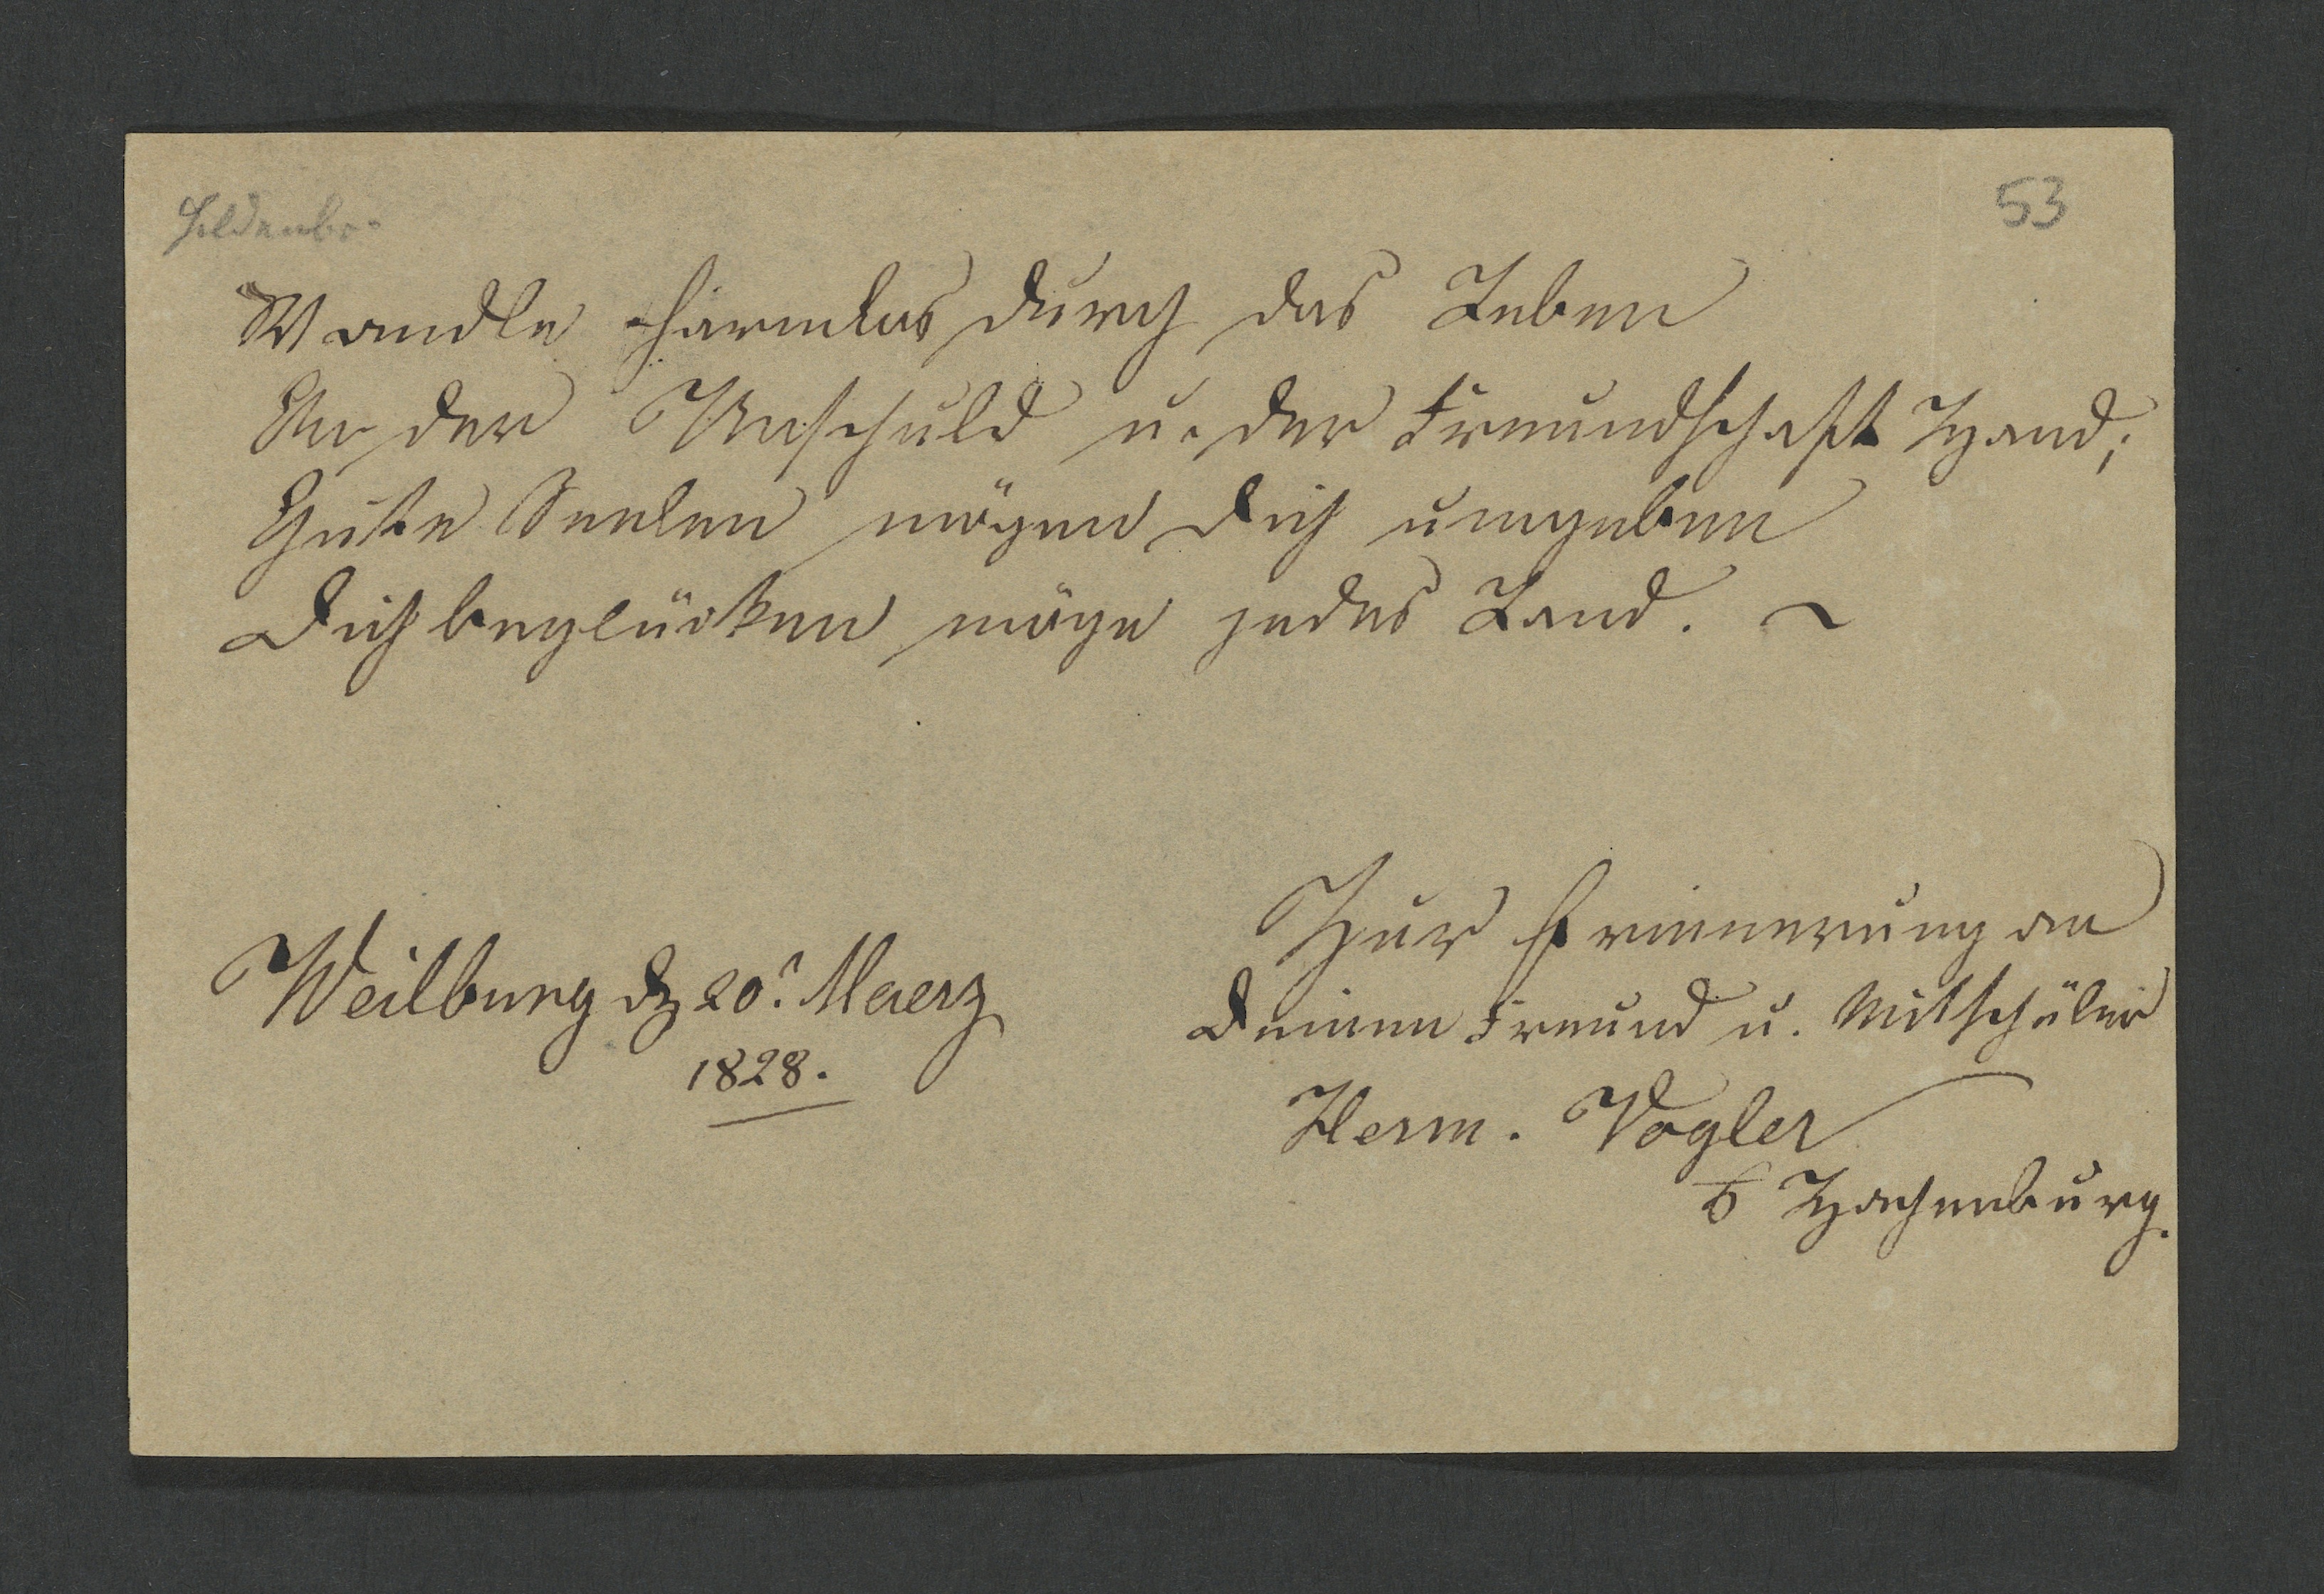 53
Wandle harmlos durch das Leben
An der Unschuld u. der Freundschaft Hand;
Gute Seelen mögen Dich umgeben
Dich beglücken möge jedes Land. ~
Weilburg d. 20t. Maerz
1828.
Zur Erinnerung an
Deinen Freund u. Mitschüler
Herm. Vogler
Hachenburg.